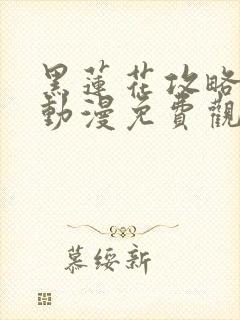 黑蓮花攻略
動漫免費觀
慕綏新